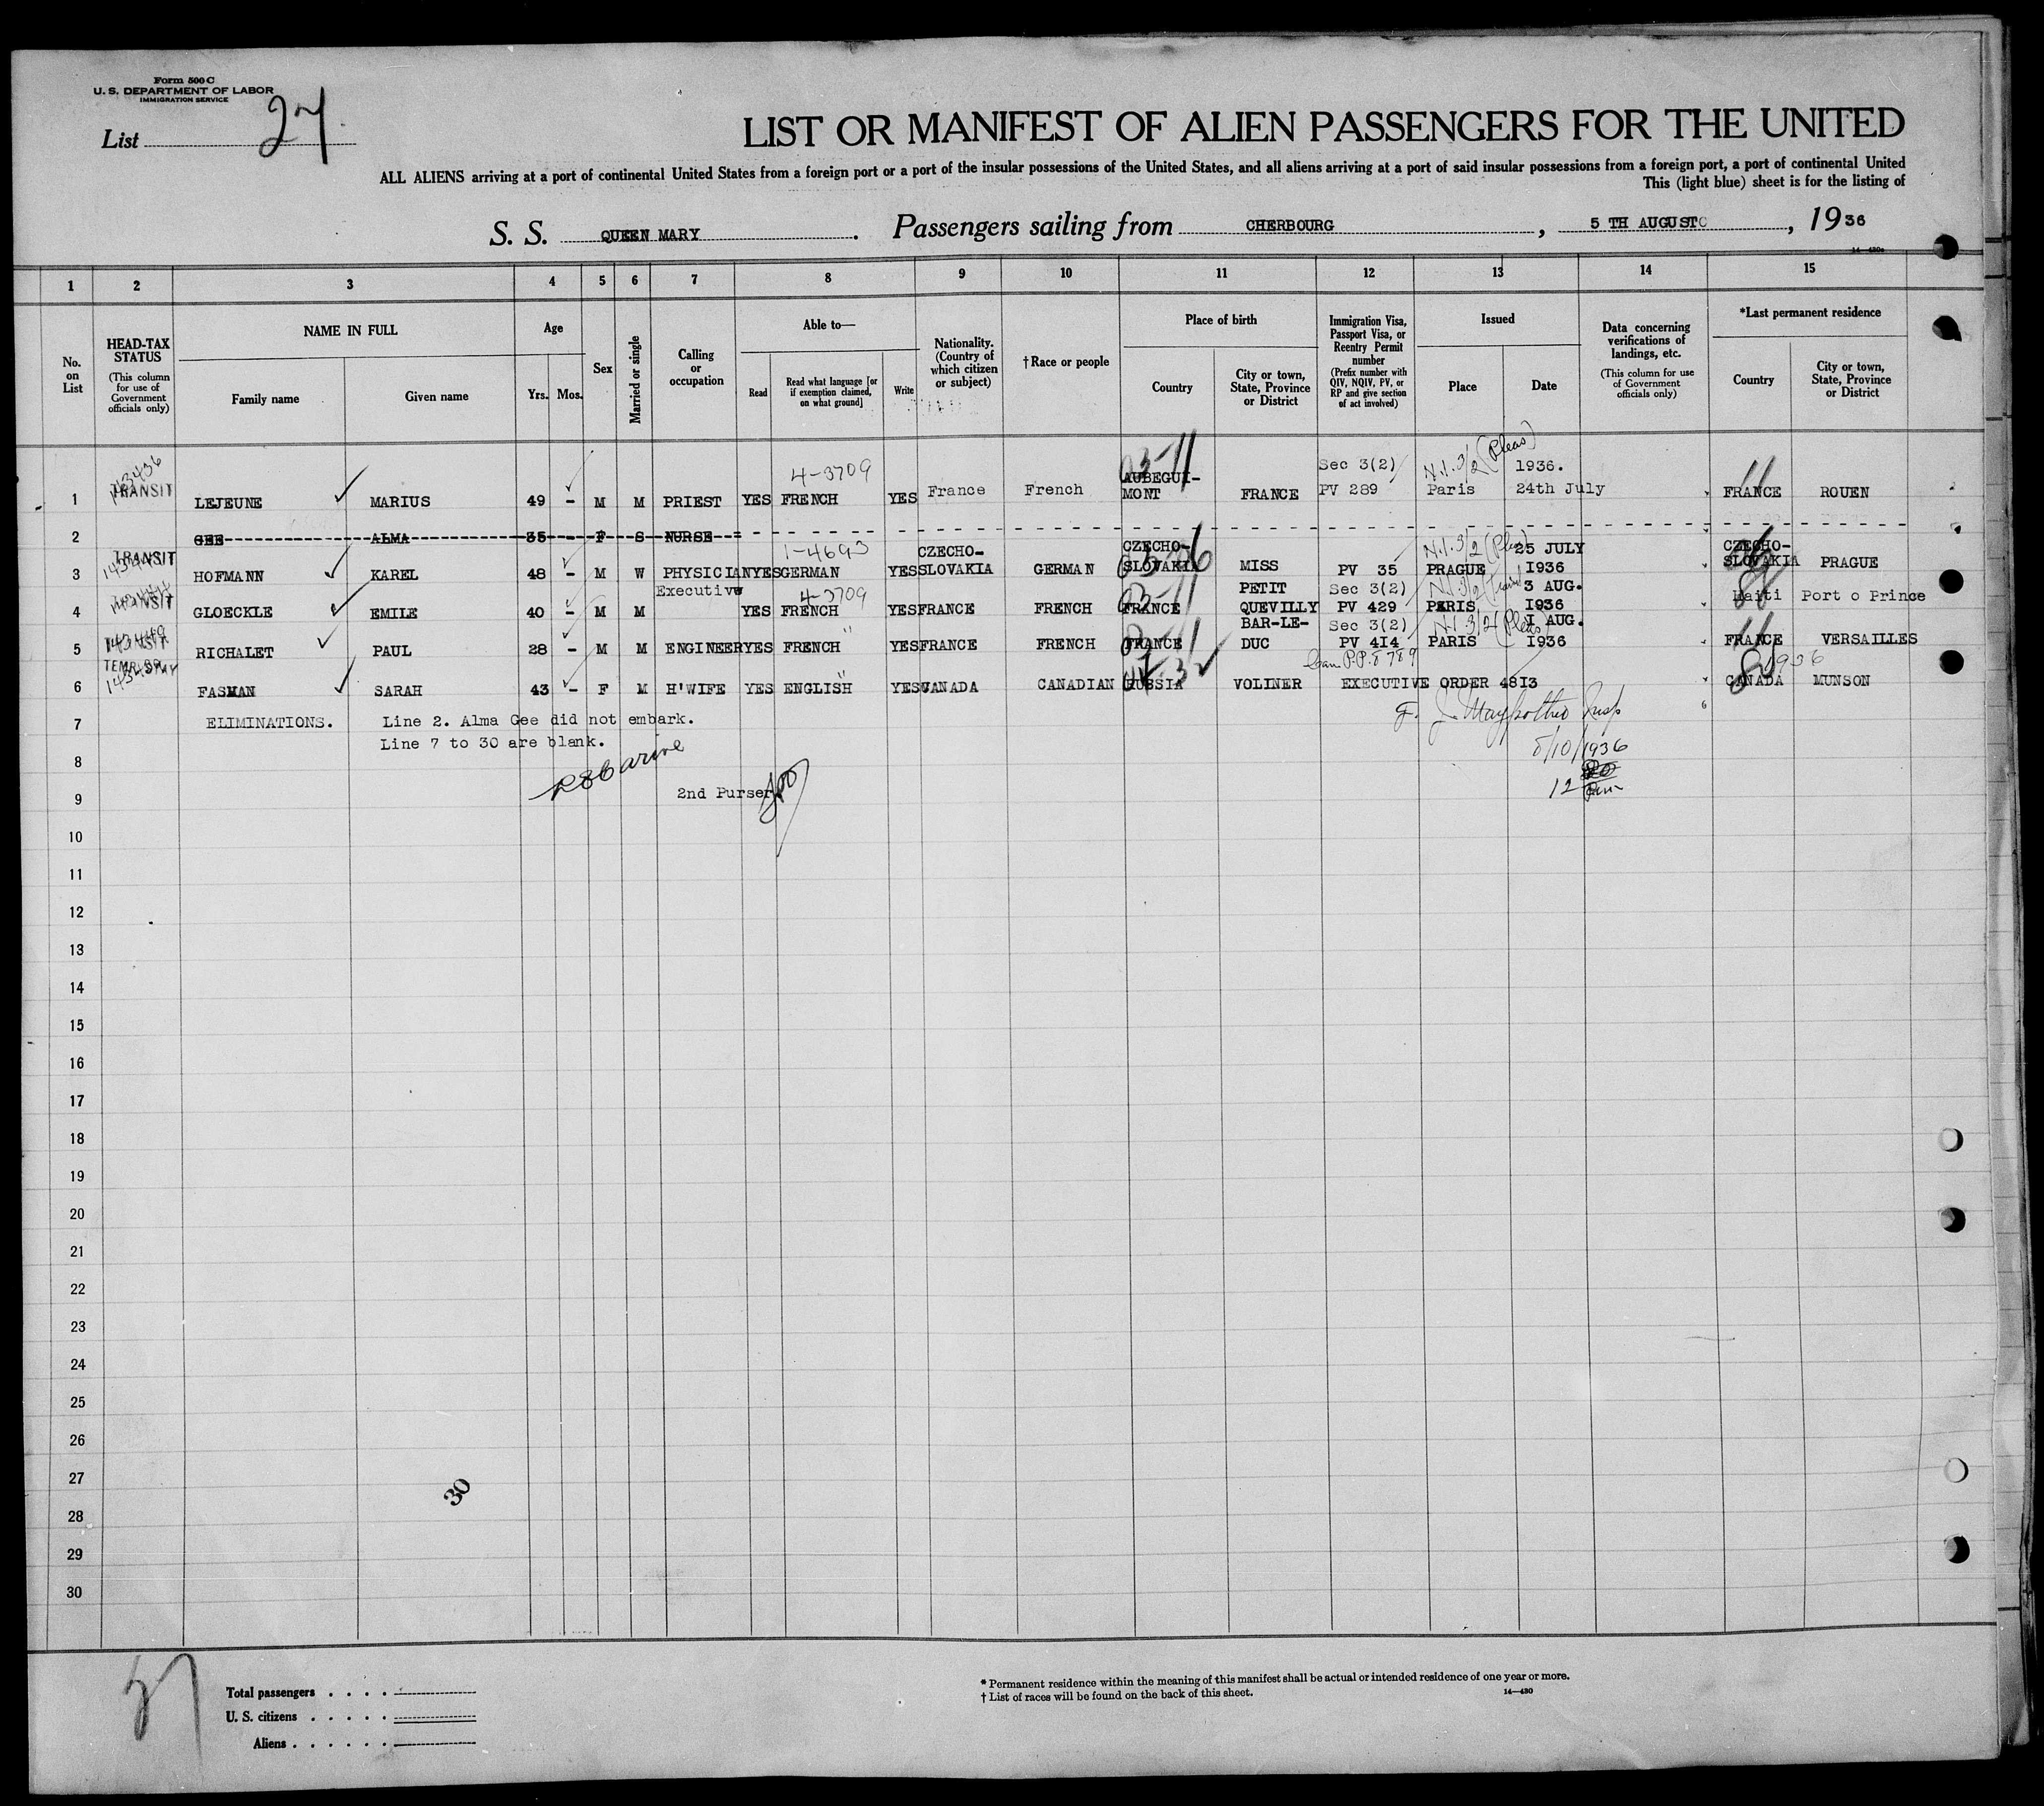 Form 500 C
U. S. DEPARTMENT OF LABOR
IMMIGRATION SERVICE
List 27
LIST OR MANIFEST OF ALIEN PASSENGERS FOR THE UNITED
ALL ALIENS arriving at a port of continental United States from a foreign port or a port of the insular possessions of the United States, and all aliens arriving at a port of said insular possessions from a foreign port, a port of continental United
This (light blue) sheet is for the listing of
S. S. QUEEN MARY. Passengers sailing from CHERBOURG, 5 TH AUGUST, 1936
14—430a
1 2 3 4 5 6 7 8 9 10 11 12 13 14 15
No. on List
HEAD-TAX STATUS
(This column for use of Government officials only)
NAME IN FULL
Family name
Given name
Age
Yrs.
Mos.
Sex
Married or single
Calling or occupation
Able to—
Read
Read what language [or if exemption claimed, on what ground]
Write
Nationality. (Country of which citizen or subject)
†Race or people
Place of birth
Country
City or town, State, Province or District
Immigration Visa, Passport Visa, or Reentry Permit number
(Prefix number with QIV, NQIV, PV, or RP and give section of act involved)
Issued
Place
Date
Data concerning verifications of landings, etc.
(This column for use of Government officials only)
*Last permanent residence
Country
City or town, State, Province or District
4-3709 03-11 Sec 3(2) N.I. 3/2 (Pleas) 1936. 11
1 TRANSIT LEJEUNE MARIUS 49 - M M PRIEST YES FRENCH YES France French AUBEGUI-MONT FRANCE PV 289 Paris 24th July FRANCE ROUEN
2 GEE ALMA 35 - F S NURSE
1-4693 CZECHO- CZECHO- N.I. 3/2 25 JULY CZECHO-
3 TRANSIT HOFMANN KAREL 48 - M W PHYSICIAN YES GERMAN YES SLOVAKIA GERMAN SLOVAKIA MISS PV 35 PRAGUE I936 SLOVAKIA PRAGUE
Executive 4-3709 03-11 PETIT Sec 3(2) 3 AUG.
4 TRANSIT GLOECKLE EMILE 40 - M M YES FRENCH YES FRANCE FRENCH FRANCE QUEVILLY PV 429 PARIS I936 Haiti Port o Prince
BAR-LE- Sec 3(2) N.I 3/2 (Pleas) I AUG. 11
5 RICHALET PAUL 28 - M M ENGINEER YES FRENCH " YES FRANCE FRENCH FRANCE DUC PV 4I4 PARIS I936 FRANCE VERSAILLES
Can. P.P. 8789
6 FASMAN SARAH 43 - F M H'WIFE YES ENGLISH " YES CANADA CANADIAN RUSSIA VOLINER EXECUTIVE ORDER 48I3 CANADA MUNSON
7 ELIMINATIONS. Line 2. Alma Gee did not embark.
Line 7 to 30 are blank.
8 8/10/1936
9 2nd Purser. 12
10
11
12
13
14
15
16
17
18
19
20
21
22
23
24
25
26
27
30
28
29
30
Total passengers . . . .
U. S. citizens . . . . .
Aliens . . . . . .
* Permanent residence within the meaning of this manifest shall be actual or intended residence of one year or more.
† List of races will be found on the back of this sheet.
14—430